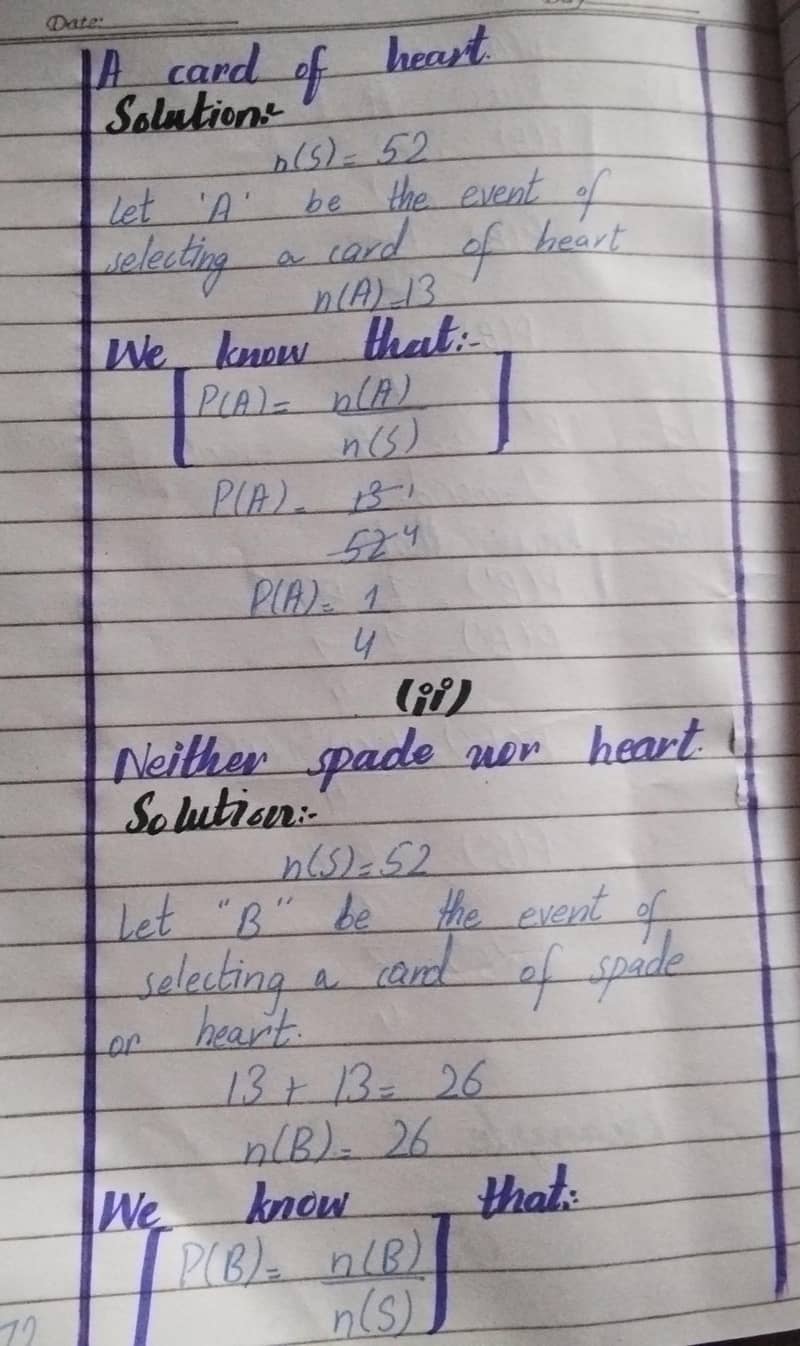 Date:
A card of heart.
Solution:-
n(S)= 52
Let 'A' be the event of
selecting a card of heart
n(A)=13
We know that:-
P(A)= n(A)
n(S)
P(A)= 13 1
52 4
P(A)= 1
4
(ii)
Neither spade nor heart.
Solution:-
n(S)=52
Let "B" be the event of
selecting a card of spade
or heart.
13 + 13= 26
n(B)= 26
We know that:
P(B)= n(B)
n(S)